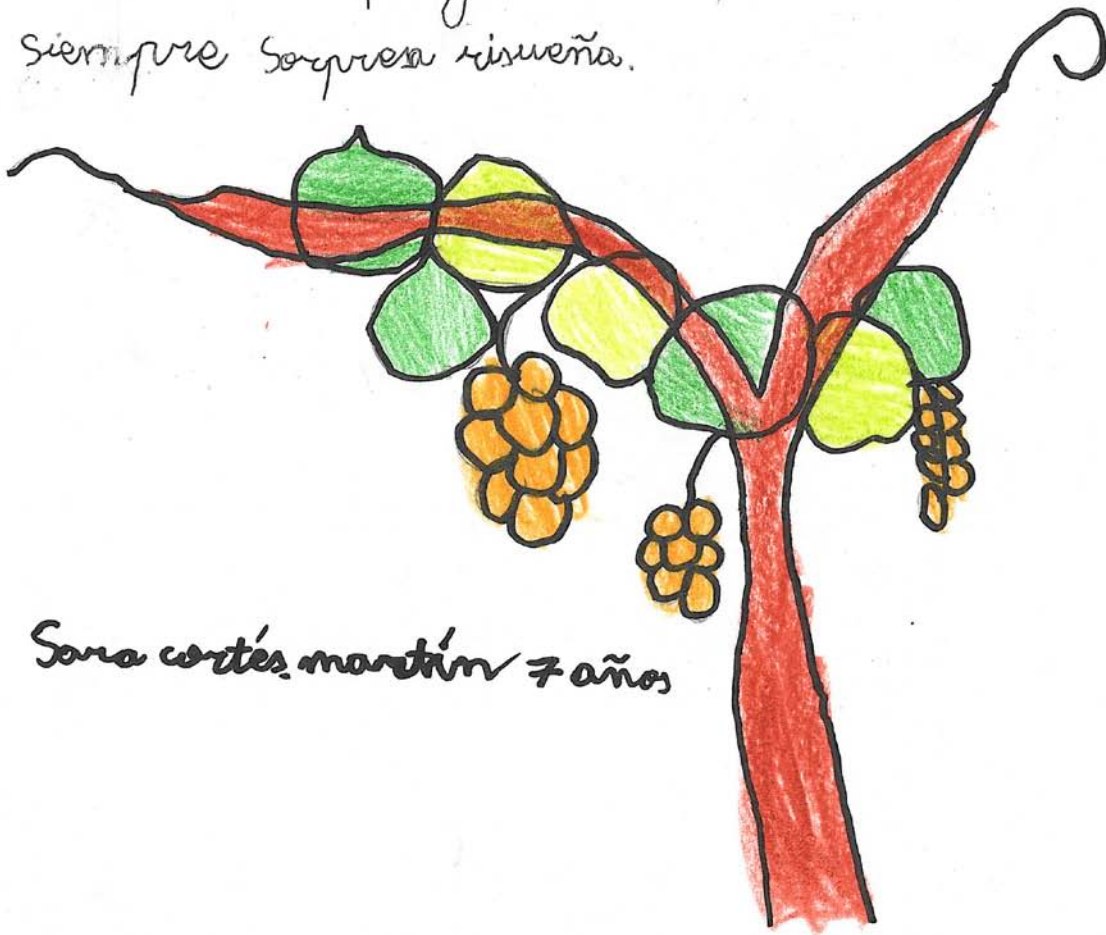 siempre Sorpresa risueña.
Sara cortés martín 7 años